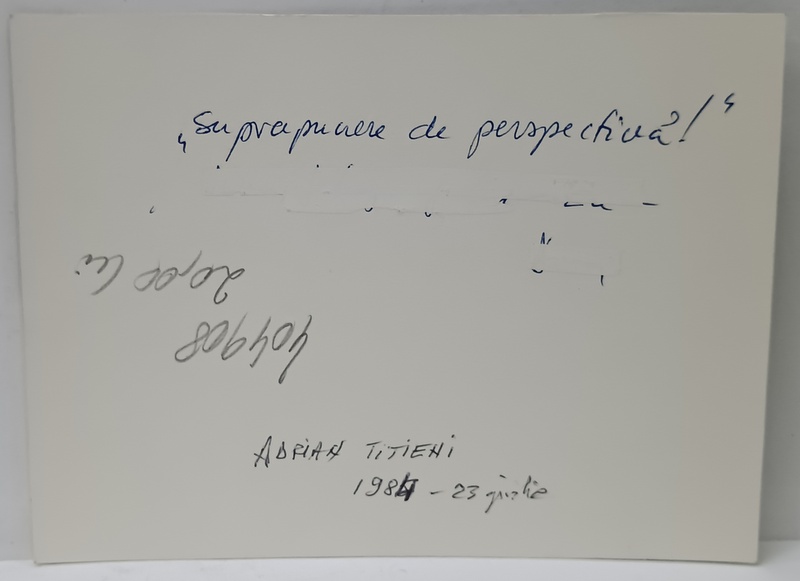 „Suprapunere de perspectivă!“
20,00 lei
404908
ADRIAN TITIENI
1984 - 23 iulie